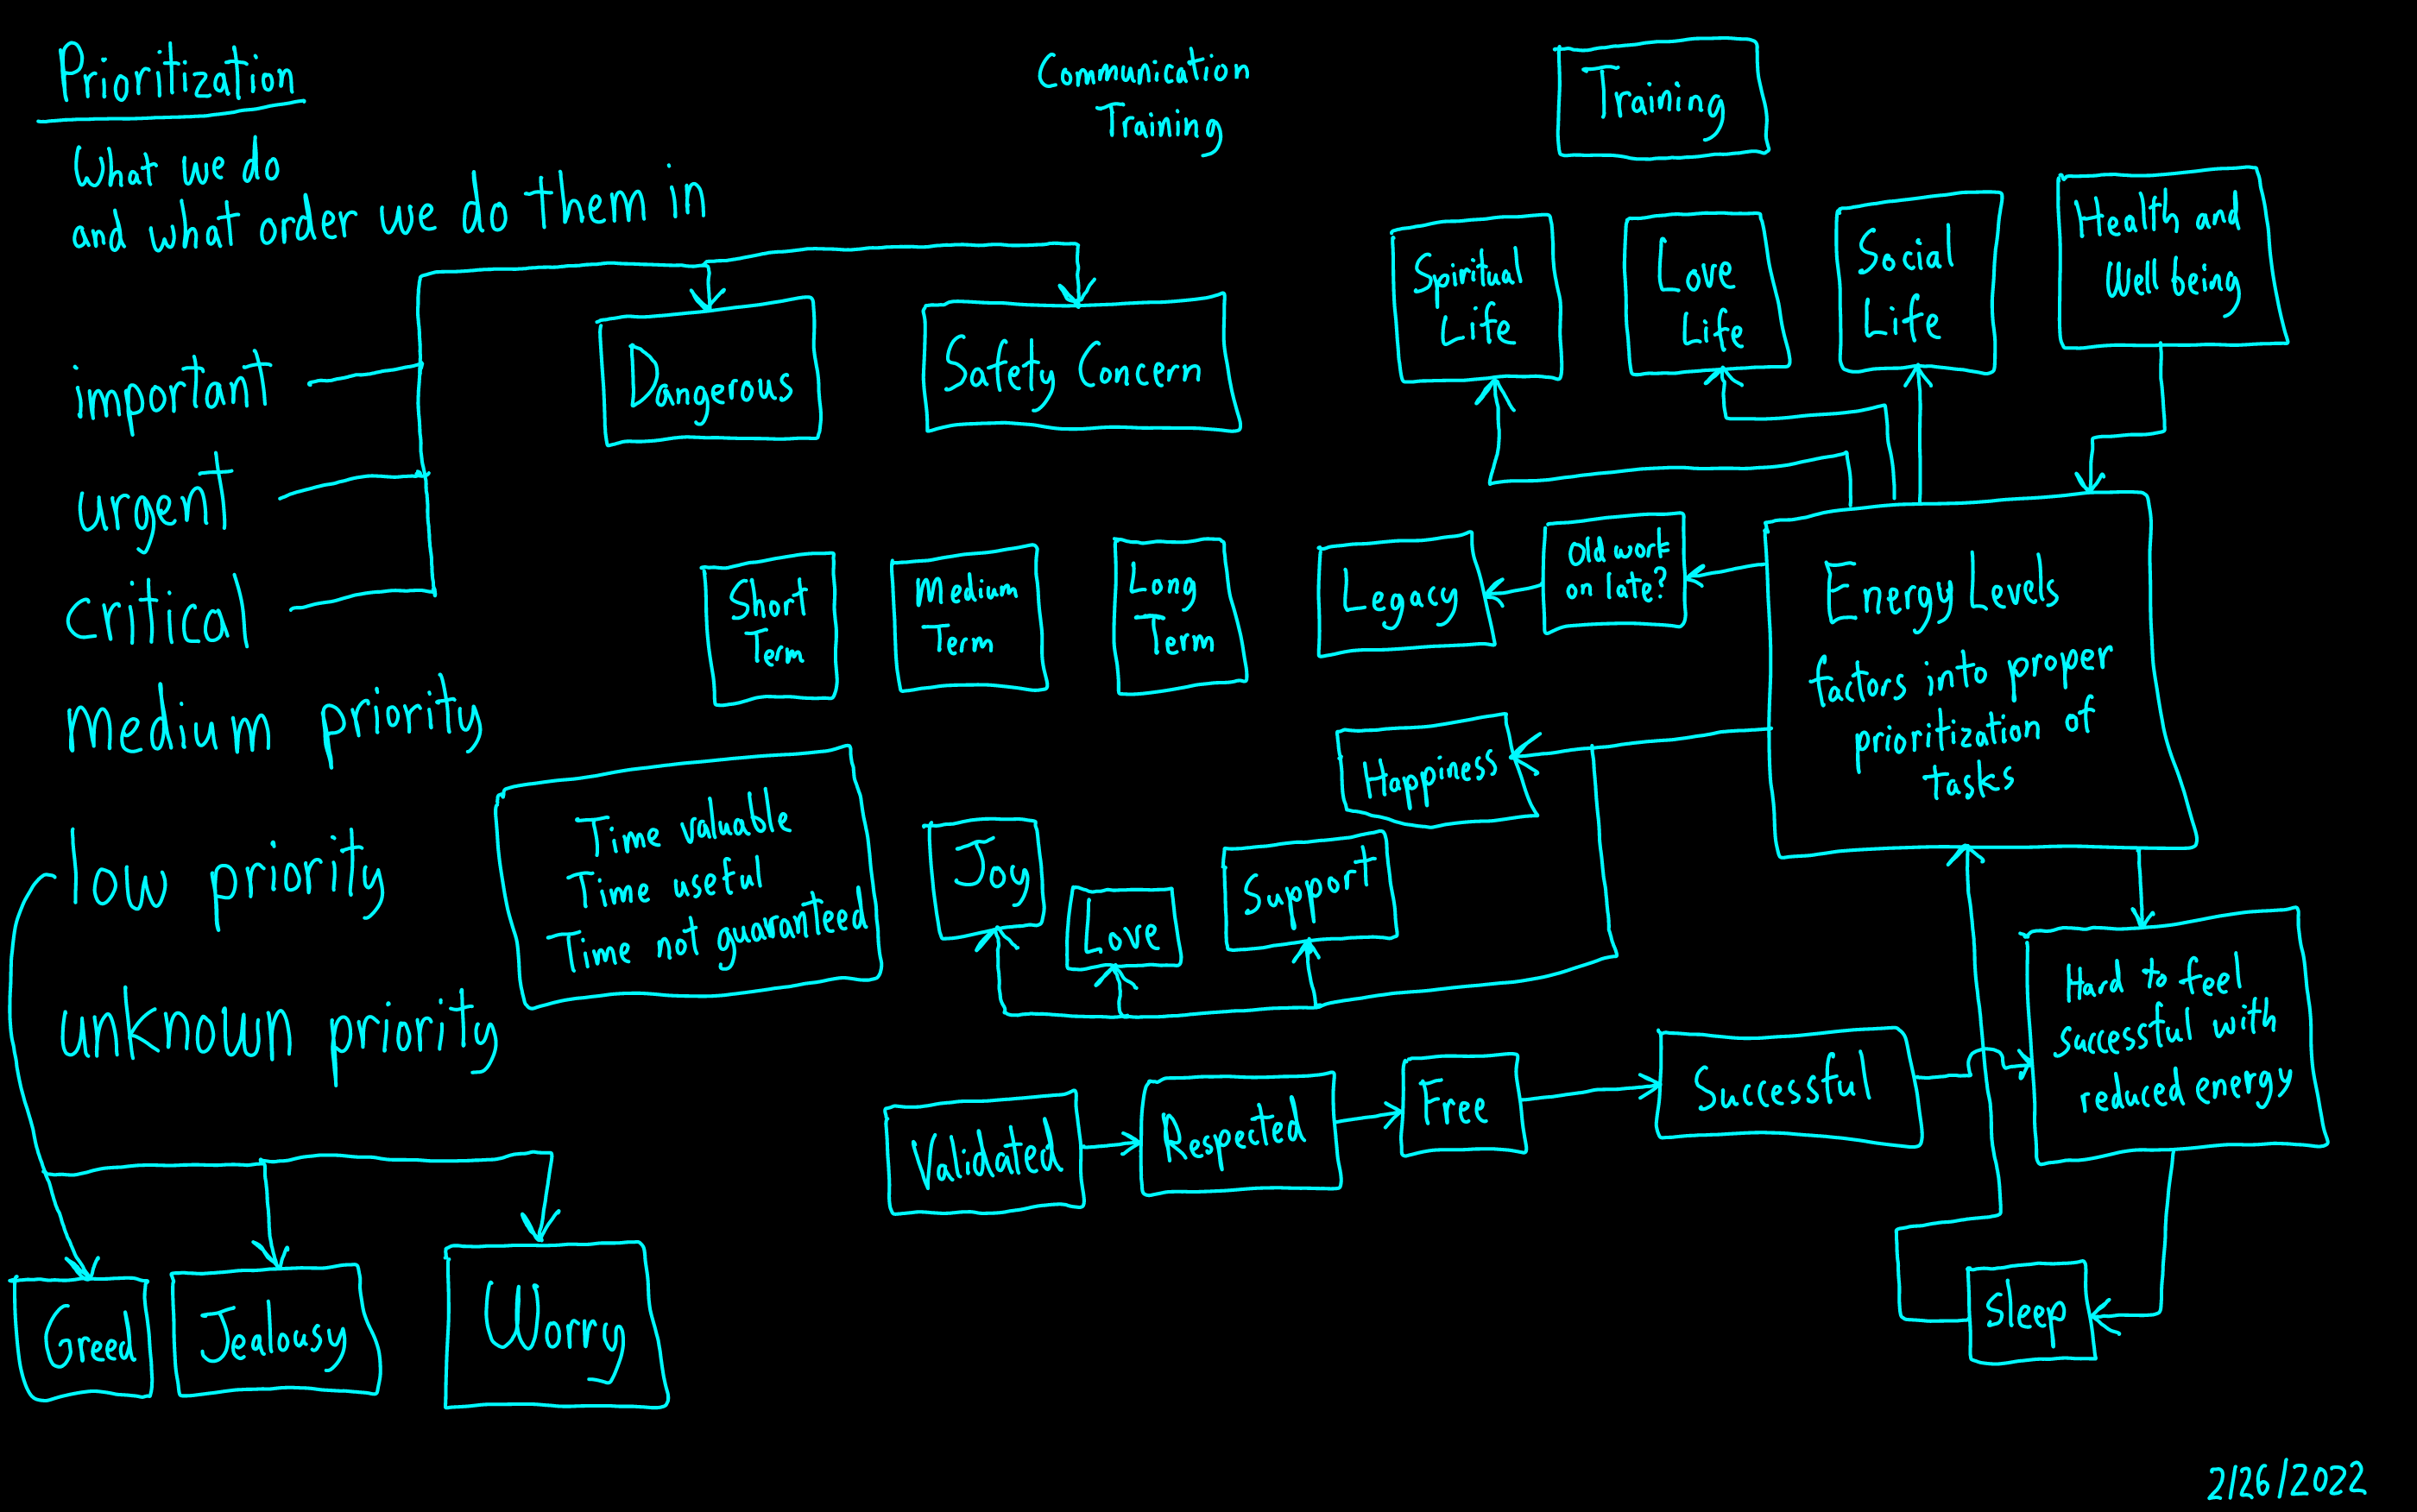 Prioritization
What we do
and what order we do them in
Communication
Training
Training
important
urgent
critical
medium priority
low priority
unknown priority
Dangerous
Safety Concern
Spiritual
Life
Love
Life
Social
Life
Health and
Well being
Short
Term
Medium
Term
Long
Term
Legacy
Old work
on late?
Energy Levels
factors into proper
prioritization of
tasks
Time valuable
Time useful
Time not guaranteed
Happiness
Joy
Love
Support
Validated
Respected
Free
Successful
Hard to feel
successful with
reduced energy
Sleep
Greed
Jealousy
Worry
2/26/2022